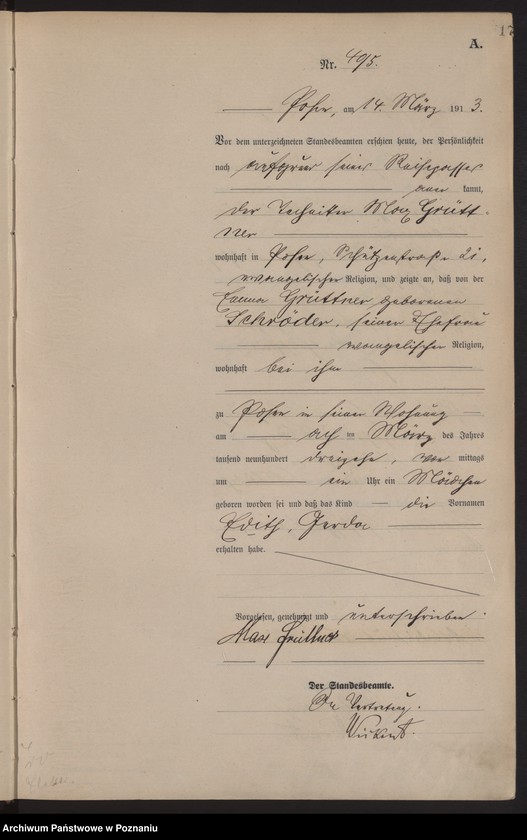 17
A.
Nr. 495.
Posen, am 14. März 1913.
Vor dem unterzeichneten Standesbeamten erschien heute, der Persönlichkeit
nach auf Grund seines Reisepasses
anerkannt,
der Techniker Max Grütt-
ner
wohnhaft in Posen, Schützenstraße 21,
evangelischer Religion, und zeigte an, daß von der
Emma Grüttner geborenen
Schröder, seiner Ehefrau
evangelischer Religion,
wohnhaft bei ihm
zu Posen in seiner Wohnung
am acht ten März des Jahres
tausend neunhundert dreizehn, vor mittags
um ein Uhr ein Mädchen
geboren worden sei und daß das Kind die Vornamen
Edith, Gerda
erhalten habe.
Vorgelesen, genehmigt und unterschrieben.
Max Grüttner
Der Standesbeamte.
In Vertretung.
Archiwum Państwowe w Poznaniu